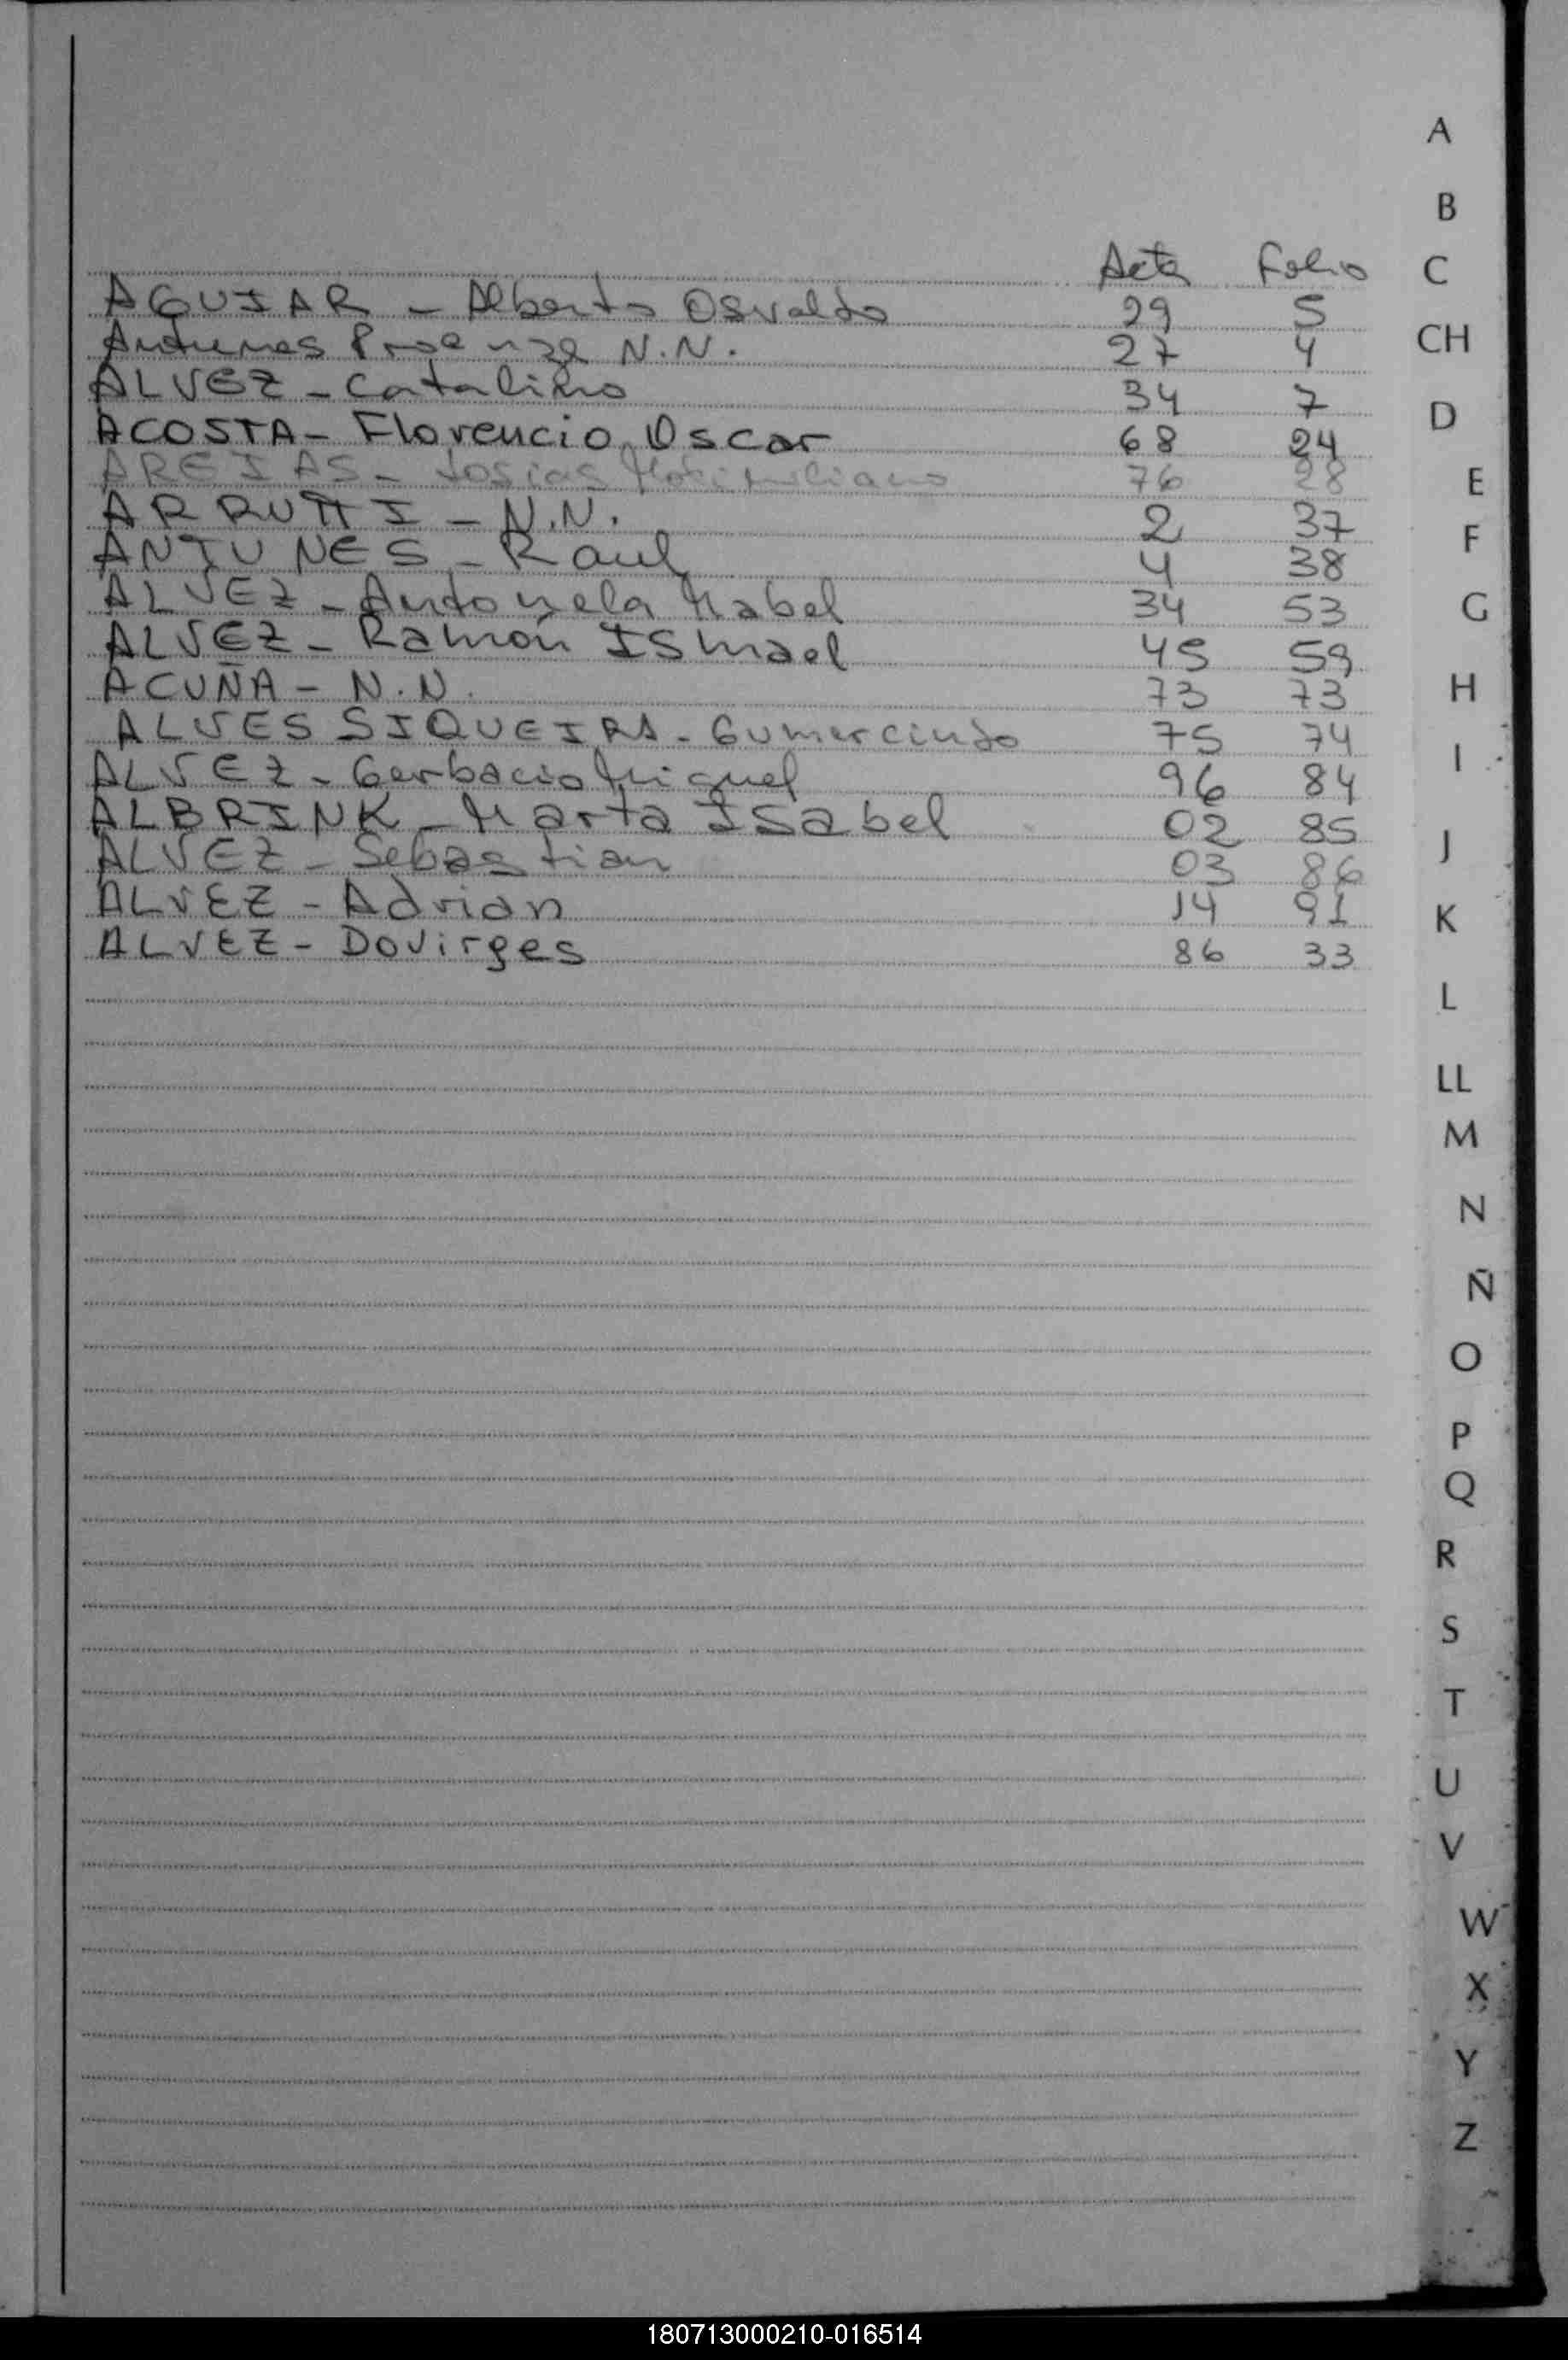 Acta Folio
AGUIAR - Alberto Osvaldo 29 5
Antunes Proenza N.N. 27 4
ALVEZ - Catalino 34 7
ACOSTA - Florencio Oscar 68 24
AREIAS - Josias Maximiliano 76 28
ARRUTTI - N.N. 2 37
ANTUNES - Raul 4 38
ALVEZ - Antonela Mabel 34 53
ALVEZ - Ramón Ismael 45 59
ACUÑA - N.N. 73 73
ALVES SIQUEIRA - Gumercindo 75 74
ALVEZ - Gerbacio Miguel 96 84
ALBRINK - Marta Isabel 02 85
ALVEZ - Sebastian 03 86
ALVEZ - Adrian 14 91
ALVEZ - Dovirges 86 33
A
B
C
CH
D
E
F
G
H
I
J
K
L
LL
M
N
Ñ
O
P
Q
R
S
T
U
V
W
X
Y
Z
180713000210-016514